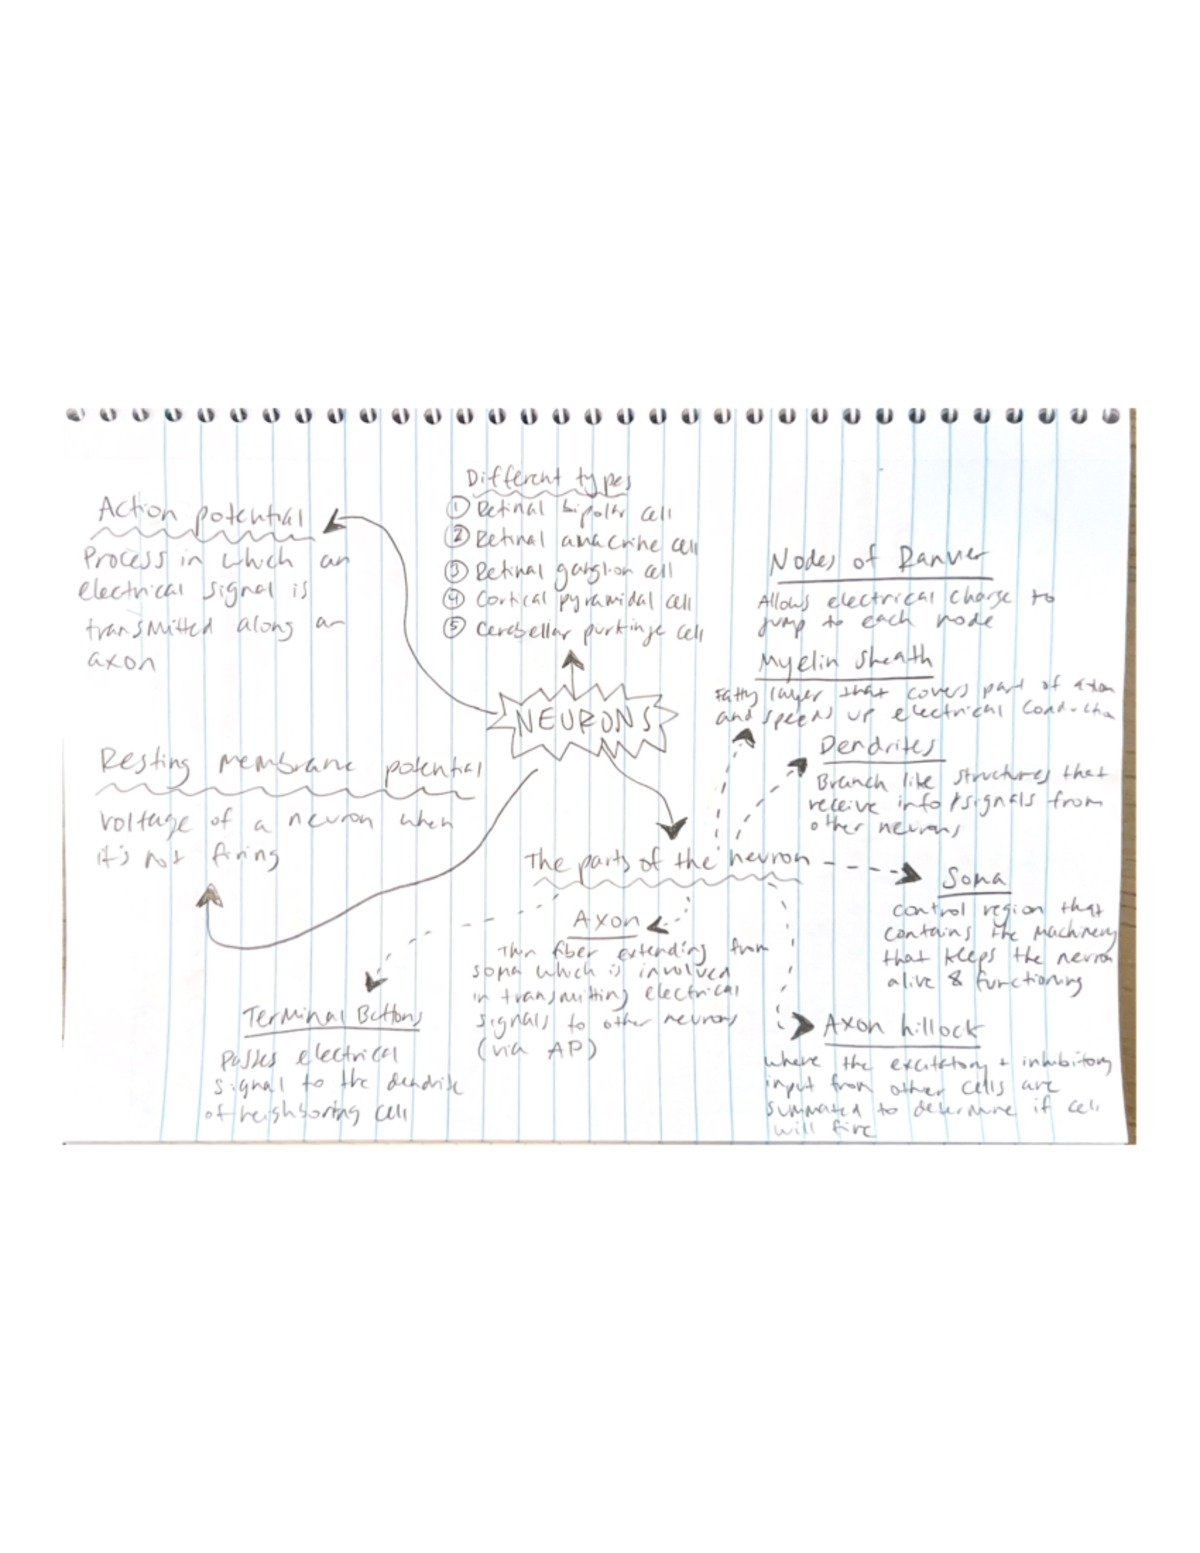 Different types
① Retinal bipolar cell
② Retinal amacrine cell
③ Retinal ganglion cell
④ Cortical pyramidal cell
⑤ Cerebellar purkinje cell
Action potential
Process in which an
electrical signal is
transmitted along an
axon
NEURONS
Nodes of Ranver
Allows electrical charge to
jump to each node
Myelin sheath
Fatty layer that covers part of axon
and speeds up electrical
Dendrites
Branch like structures that
receive info/signals from
other neurons
Resting membrane potential
voltage of a neuron when
it's not firing
The parts of the neuron
Soma
control region that
contains the machinery
that keeps the neuron
alive & functioning
Axon
Thin fiber extending from
soma which is involved
in transmitting electrical
signals to other neurons
(via AP)
Terminal Buttons
passes electrical
signal to the dendrite
of neighboring cell
Axon hillock
where the excitatory + inhibitory
input from other cells are
summated to determine if cell
will fire